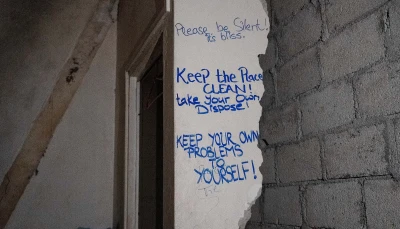 Please be Silent!
It's bliss.
KEEP the PlacE
CLEAN!
take YOUR OWN
DISPOSE!
KEEP YOUR OWN
PROBLEMS
TO
YOURSELF!